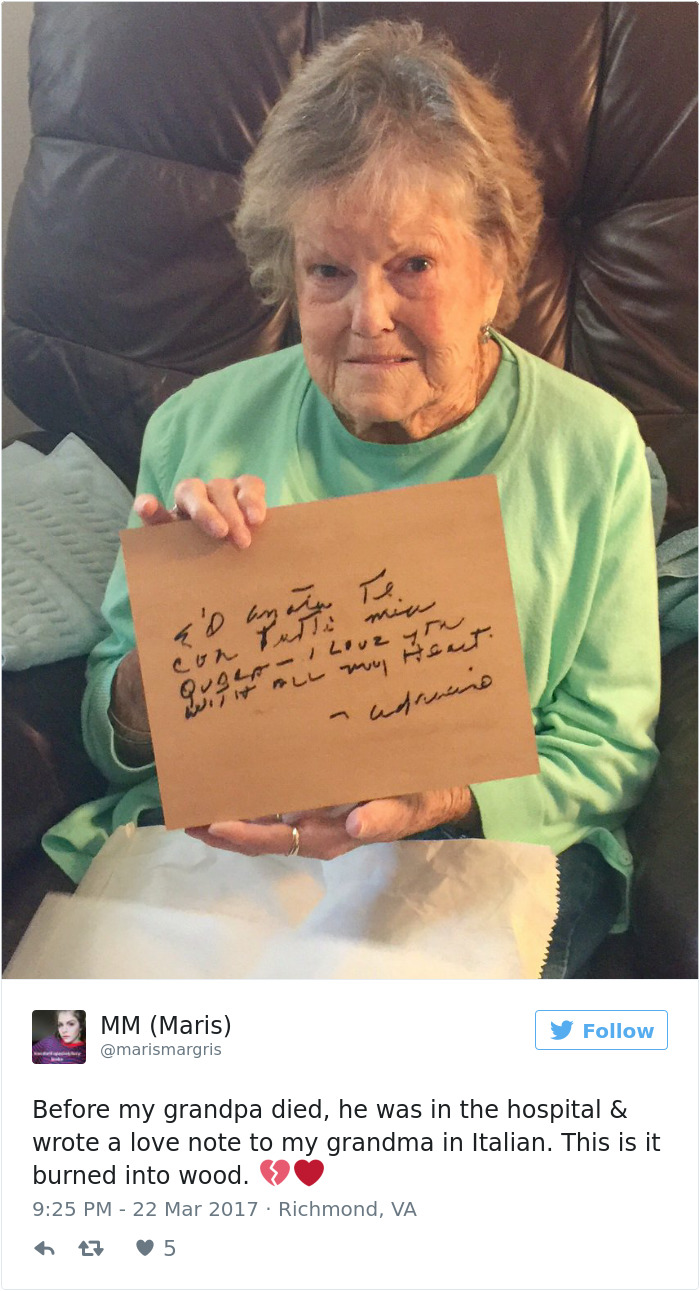 E'D amata Te
con Tutti mia
QUORA - I LOVE you
WITH ALL my Heart.
~ adriano
MM (Maris)
@marismargris
Follow
Before my grandpa died, he was in the hospital &
wrote a love note to my grandma in Italian. This is it
burned into wood. 💔❤️
9:25 PM - 22 Mar 2017 · Richmond, VA
5